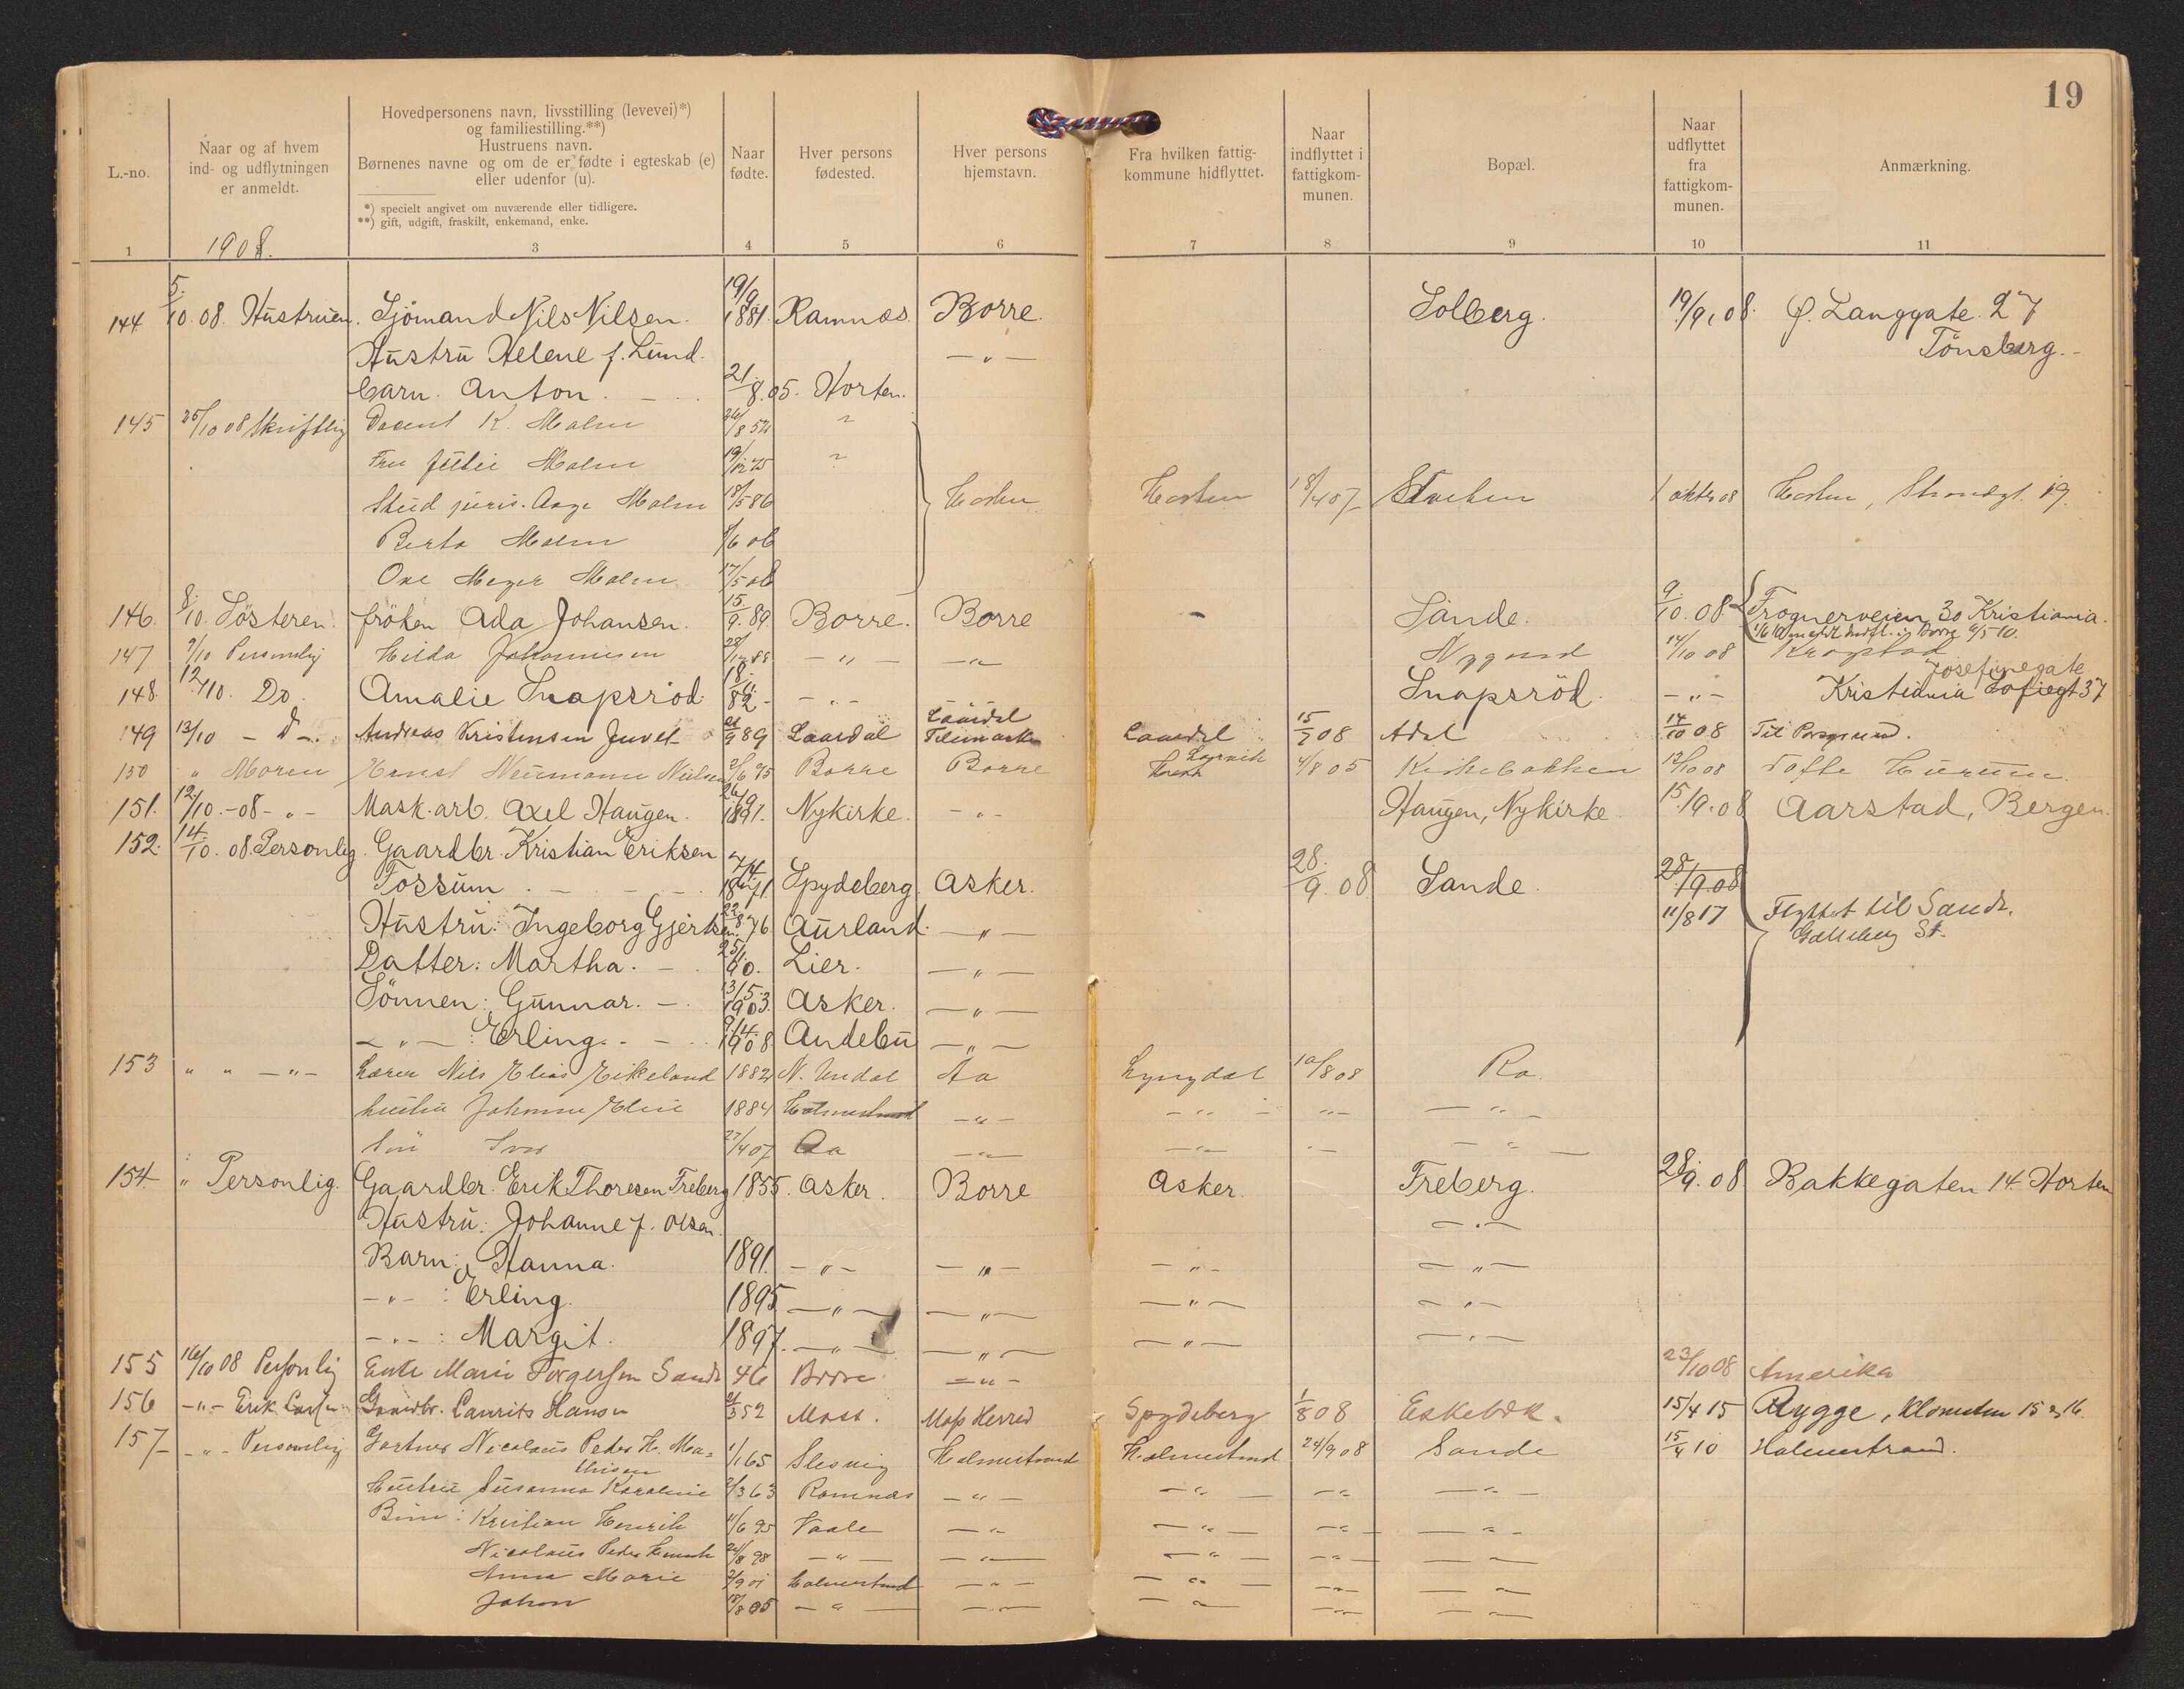 19
L.-no.
Naar og af hvem ind- og udflytningen er anmeldt.
Hovedpersonens navn, livsstilling (levevei)*) og familiestilling.**)
Hustruens navn.
Børnenes navne og om de er fødte i egteskab (e) eller udenfor (u).
*) specielt angivet om nuværende eller tidligere.
**) gift, udgift, fraskilt, enkemand, enke.
Naar fødte.
Hver persons fødested.
Hver persons hjemstavn.
Fra hvilken fattigkommune hidflyttet.
Naar indflyttet i fattigkommunen.
Bopæl.
Naar udflyttet fra fattigkommunen.
Anmærkning.
1 2 3 4 5 6 7 8 9 10 11
1908.
144 5/10.08. Hustruen. Sjömand Nils Nilsen. 19/9 1881. Ramnæs. Borre. Solberg. 19/9.08. Ø. Langgate 27
Tönsberg.
Hustru Helene f. Lund. — " —
barn. Anton. 21/8.05. Horten.
145 25/10 08 Skriftlig Docent K. Malm
Fru Julie Malm 19/12 75
Stud juris. Aage Malm 18/5 86 Horten Horten 18/4 07 1 oktbr 08 Horten, Strandgt. 19.
Berta Malm
Malm 17/5
146. 8/10. Søsteren. fröken Ada Johansen. 15/9.89. Borre. Borre - Sande. 9/10.08. Frognerveien 30 Kristiania.
147 9/10 Personlig Hilda Johannesen — " — — " — Nygaard 14/10 08
148. 12/10. Do Amalie Snapsröd. — " — Snapsröd. — " — Josefinegate
Kristiania Sofiegt 37
149 13/10 - D - Andreas Kristensen Juvet 21/9 89 Laardal Laardal
Telemarken Laardal 15/2 08 Adal 14/10 08 Til Porsgrund.
150 " Moren Neumann Nielsen 2/6 95 Borre Borre 4/8 05 Kirkebakken 12/10 08 Tofte Hurum.
151. 12/10.-08- " - Mask. arb. Axel Haugen. 26/9 1891. Nykirke. — " — Haugen, Nykirke. 15.10.08 Aarstad, Bergen.
152. 14/10.08. Personlig. Gaardbr. Kristian Eriksen
Fossum. Spydeberg. Asker. 28/9.08 Sande. 28/9.08
11/8 17 Flyttet til Sande.
Galleberg St.
Hustru: Ingeborg Gjertsen. 22/8 76 Aurland. — " —
Datter: Martha. Lier. — " —
Sönnen: Gunnar. 13/5 1903. Asker. — " —
— " — : Erling. 9/4 1908. Andebu — " —
153 " " — " — Lærer Nils Elias Eikeland 1882 N. Undal Aa Lyngdal 10/8 08 Ra.
hustru Johanne Elise 1884 Holmestrand — " — — " — — " — — " —
27/4 07 Aa — " — — " — — " — — " —
154. " Personlig. Gaardbr. Erik Thoresen Freberg 1855. Asker. Borre Asker. Freberg. 28/9.08 Bakkegaten 14 Horten
Hustru: Johanne f. Olsen. — " —
Barn: Hanna. 1891. — " — — " — — " — — " —
— " — : Erling. 1895 — " — — " — — " — — " —
— " — : Margit. 1897. — " — — " — — " — — " —
155 16/10 08 Personlig Enke Marie Torgersen Sande 46 Borre — " — 23/10 08 Amerika
156 — " — Erik Gaardbr. Laurits Hansen 21/3 52 Moss. Moss Herred Spydeberg 1/8 08 Eskebæk. 15/4 15 Rygge,
157 — " — Personlig Gartner Nicolaus Peder H. Ma=
thisen 1/1 65 Slesvig Holmestrand Holmestrand 24/9 08 Sande 15/4 10 Holmestrand.
Hustru Susanna Karoline 2/3 63 Ramnæs — " — — " — — " — — " —
Børn: Kristian Henrik 11/6 95 Vaale — " — — " — — " — — " —
Nicolaus Peder Henrik 24/8 98 — " — — " — — " — — " — — " —
Anna Marie 2/9 01 Holmestrand — " — — " — — " — — " —
Johan 18/8 05 — " — — " — — " — — " — — " —